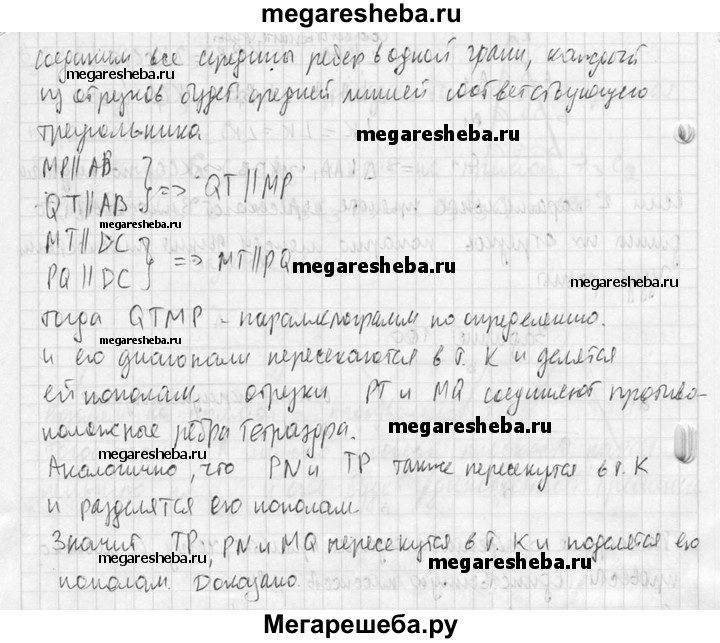 megaresheba.ru
соединим все середины ребер в одной грани, каждый
megaresheba.ru
из отрезков будет средней линией соответствующего
megaresheba.ru
треугольника
megaresheba.ru
MP || AB
QT || AB } => QT || MP
megaresheba.ru
MT || DC
PQ || DC } => MT || PQ
megaresheba.ru
тогда QTMP - параллелограмм по определению.
megaresheba.ru
и его диагонали пересекаются в т. K и делятся
ей пополам. отрезки PT и MQ соединяют противо-
megaresheba.ru
положные рёбра тетраэдра.
megaresheba.ru
Аналогично, что PN и TP также пересекутся в т. K
megaresheba.ru
и разделятся ею пополам.
Значит TP, PN и MQ пересекутся в т. K и поделятся ею
megaresheba.ru
megaresheba.ru
пополам. Доказано.
Мегарешеба.ру